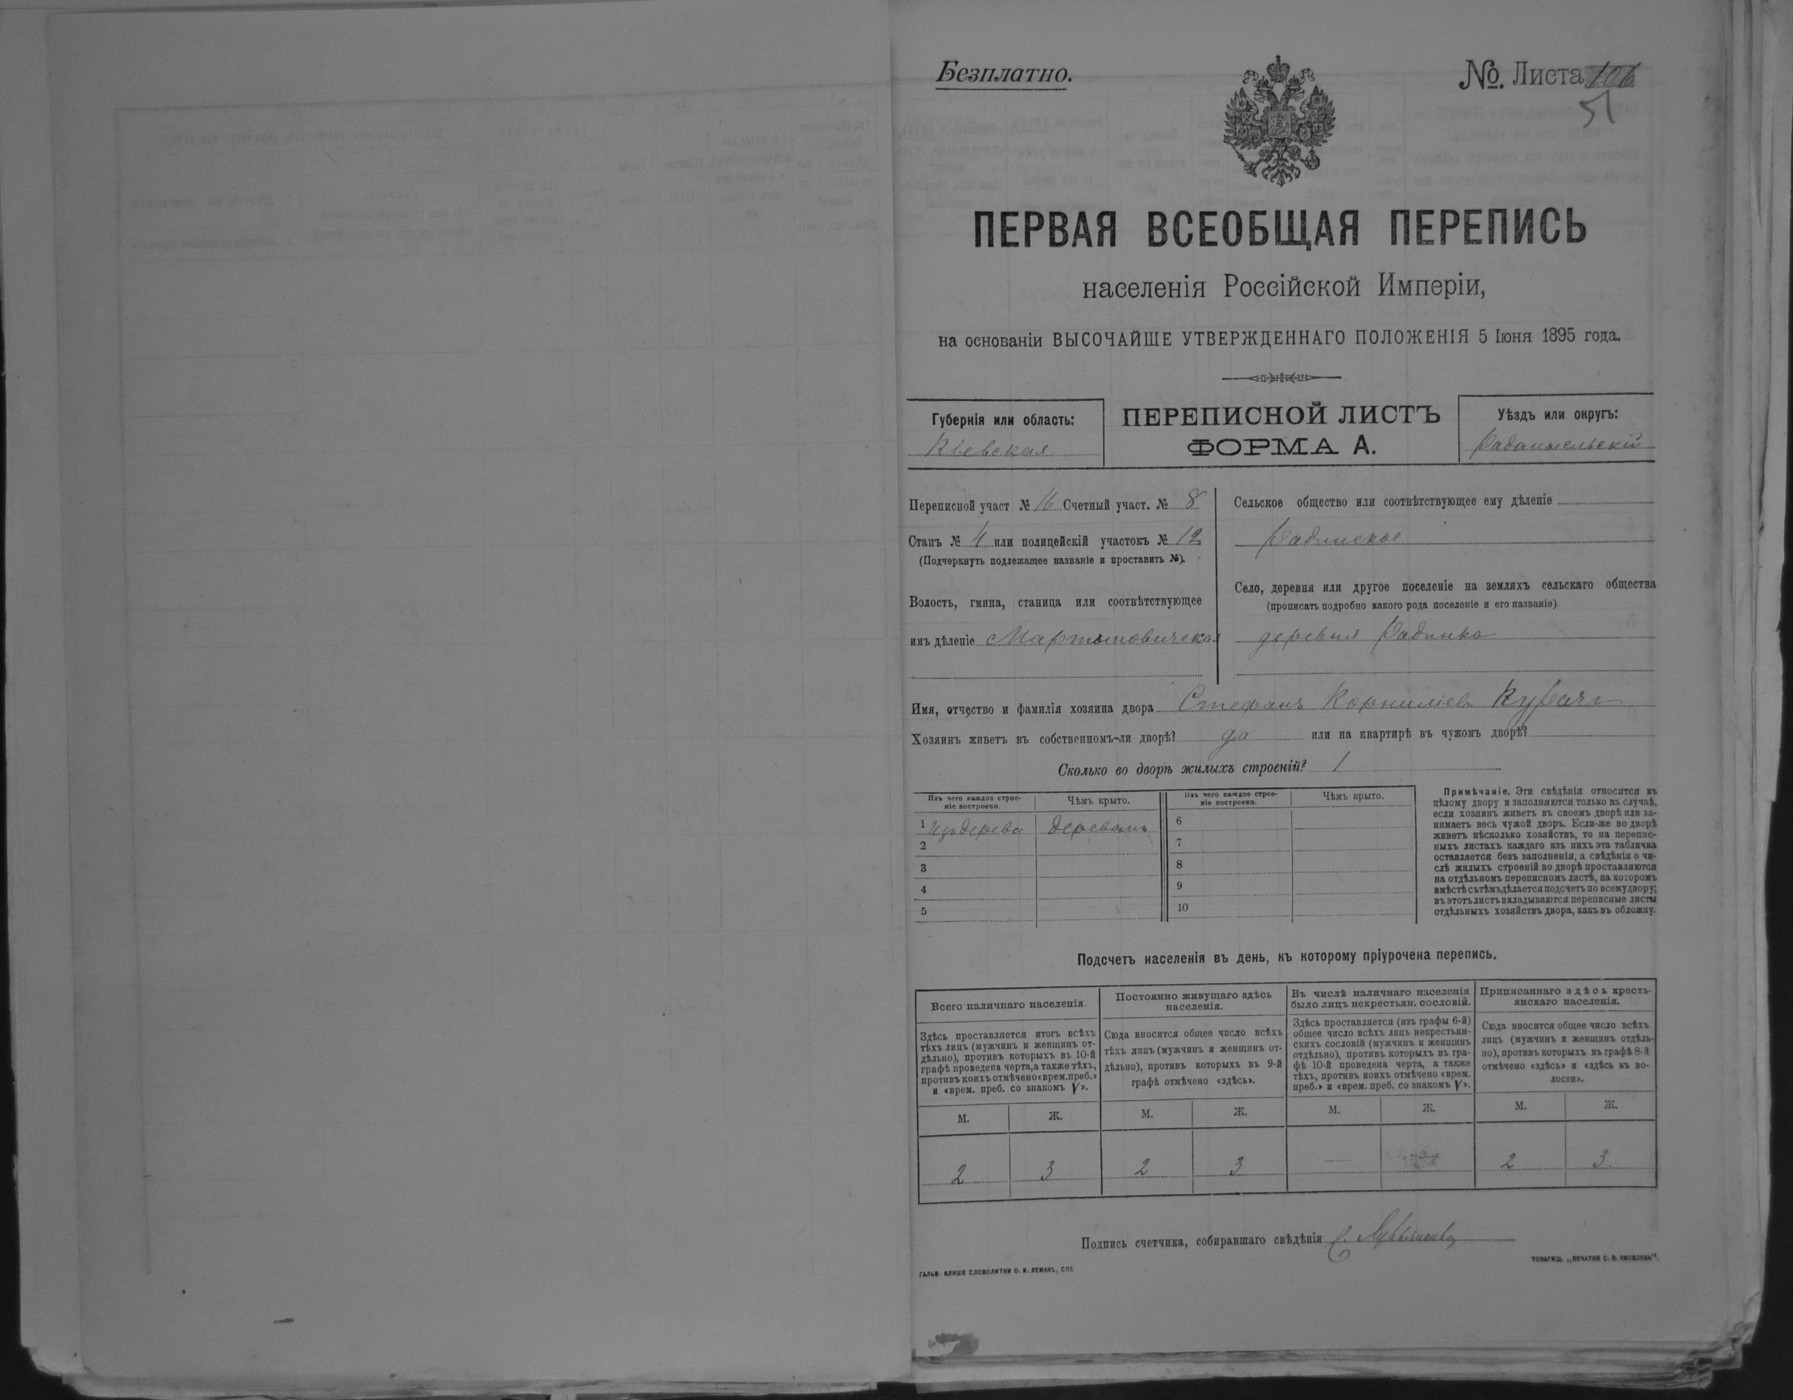 Безплатно.
№ Листа 106
51
ПЕРВАЯ ВСЕОБЩАЯ ПЕРЕПИСЬ
населенія Россійской Имперіи,
на основаніи ВЫСОЧАЙШЕ УТВЕРЖДЕННАГО ПОЛОЖЕНІЯ 5 Іюня 1895 года.
Губернія или область:
Кіевская
ПЕРЕПИСНОЙ ЛИСТЪ
ФОРМА А.
Уѣздъ или округъ:
Радомысльскій
Переписной участ № 16 Счетный участ. № 8
Станъ № 4 или полицейскій участокъ № 12
(Подчеркнуть подлежащее названіе и проставить №).
Волость, гмина, станица или соотвѣтствующее
имъ дѣленіе Мартыновичская
Сельское общество или соотвѣтствующее ему дѣленіе
Радинское
Село, деревня или другое поселеніе на земляхъ сельскаго общества
(прописать подробно какого рода поселеніе и его названіе)
деревня Радинка
Имя, отчество и фамилія хозяина двора Стефанъ Корниліев
Хозяинъ живетъ въ собственномъ-ли дворѣ? да или на квартирѣ въ чужомъ дворѣ?
Сколько во дворѣ жилыхъ строеній? 1
Изъ чего каждое строе-
ніе построено.
Чѣмъ крыто.
Изъ чего каждое строе-
ніе построено.
Чѣмъ крыто.
1 Изъ дерева деревомъ 6
2 7
3 8
4 9
5 10
Примѣчаніе. Эти свѣдѣнія относятся къ
цѣлому двору и заполняются только въ случаѣ,
если хозяинъ живетъ въ своемъ дворѣ или за-
нимаетъ весь чужой дворъ. Если-же во дворѣ
живетъ нѣсколько хозяйствъ, то на перепис-
ныхъ листахъ каждаго изъ нихъ эта табличка
оставляется безъ заполненія, а свѣдѣнія о чи-
слѣ жилыхъ строеній во дворѣ проставляются
на отдѣльномъ переписномъ листѣ, на которомъ
вмѣстѣ съ тѣмъ дѣлается подсчетъ по всему двору;
въ этотъ листъ вкладываются переписные листы
отдѣльныхъ хозяйствъ двора, какъ въ обложку.
Подсчетъ населенія въ день, къ которому пріурочена перепись.
Всего наличнаго населенія.
Здѣсь проставляется итогъ всѣхъ
тѣхъ лицъ (мужчинъ и женщинъ от-
дѣльно), противъ которыхъ въ 10-й
графѣ проведена черта, а также тѣхъ,
противъ коихъ отмѣчено «врем. преб.»
и «врем. преб. со знакомъ V».
Постоянно живущаго здѣсь
населенія.
Сюда вносится общее число всѣхъ
тѣхъ лицъ (мужчинъ и женщинъ от-
дѣльно), противъ которыхъ въ 9-й
графѣ отмѣчено «здѣсь».
Въ числѣ наличнаго населенія
было лицъ некрестьян. сословій.
Здѣсь проставляется (изъ графы 6-й)
общее число всѣхъ лицъ некрестьян-
скихъ сословій (мужчинъ и женщинъ
отдѣльно), противъ которыхъ въ гра-
фѣ 10-й проведена черта, а также
тѣхъ, противъ коихъ отмѣчено «врем.
преб.» и «врем. преб. со знакомъ V».
Приписаннаго здѣсь кресть-
янскаго населенія.
Сюда вносится общее число всѣхъ
лицъ (мужчинъ и женщинъ отдѣль-
но), противъ которыхъ въ графѣ 8-й
отмѣчено «здѣсь» и «здѣсь къ во-
лости».
М. Ж. М. Ж. М. Ж. М. Ж.
2 3 2 3 — 2 3
Подпись счетчика, собиравшаго свѣдѣнія
ГАЛЬВ. КЛИШЕ СЛОВОЛИТНИ О. И. ЛЕМАНЪ, СПБ
ТОВАРИЩ. „ПЕЧАТНЯ С. П. ЯКОВЛЕВА“.